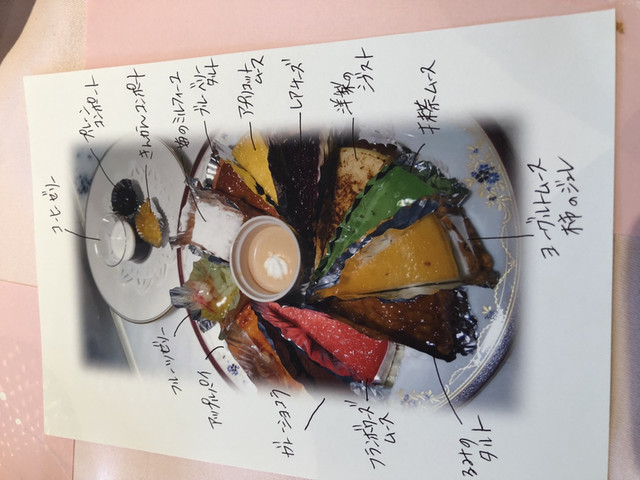 コーヒーゼリー
プルーン
コンポート
きんかんコンポート
苺のミルフィーユ
ブルーベリー
タルト
アプリコット
ムース
レアチーズ
洋梨の
抹茶ムース
ヨーグルトムース
柿のジュレ
タルト
フランボワーズ
ムース
ガトーショコラ
アップルパイ
フルーツゼリー